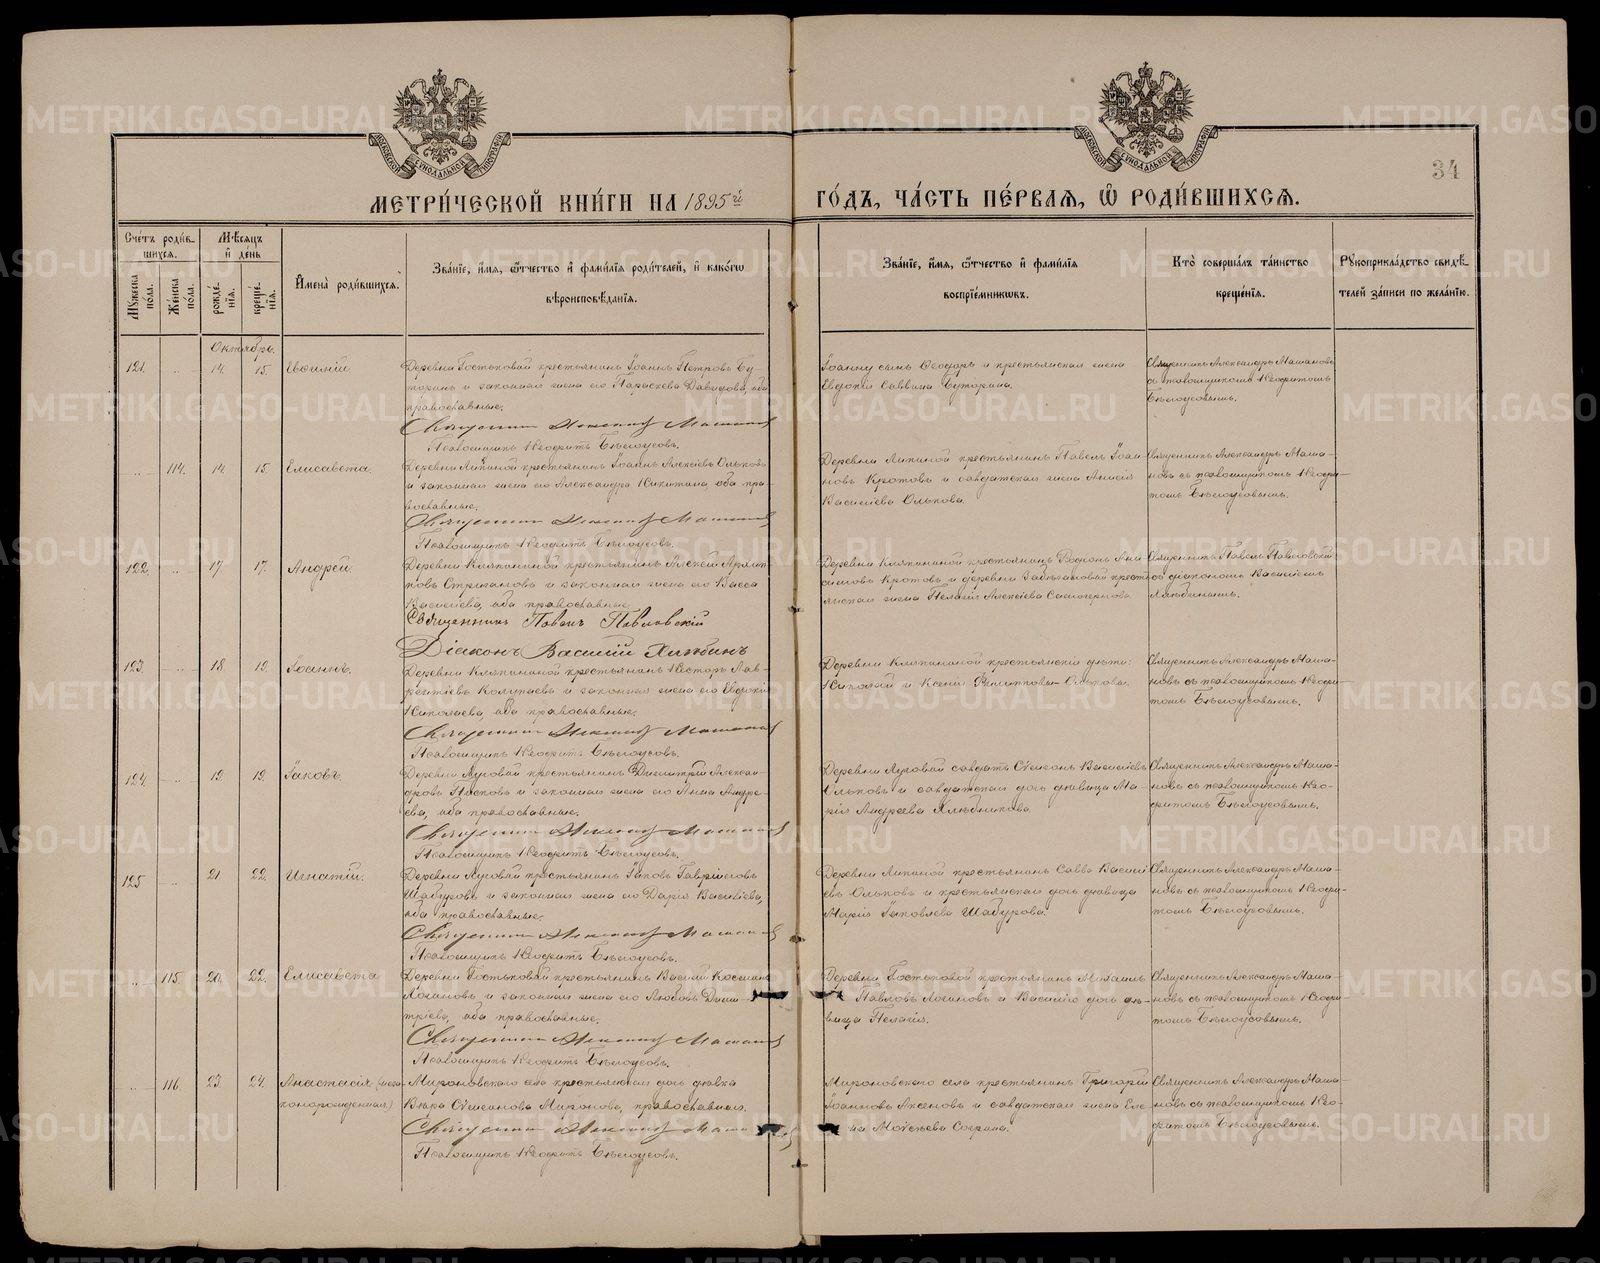 34
МЕТРИ́ЧЕСКОЙ КНИ́ГИ НА 1895й ГО́ДЪ, ЧА́СТЬ ПЕ́РВАЯ, Ѽ РОДИ́ВШИХСЯ.
Сче́тъ роди́в-
шихся.
Мужеска по́ла.
Же́нска по́ла.
Мѣ́сяцъ
и́ де́нь
рожде́-
нія.
креще́-
нія.
И́мена̀ роди́вшихся.
Зва́ніе, и́мя, ѻ́тчество и́ фами́лія роди́телей, и́ како́гѡ
вѣроисповѣ́данія.
Зва́ніе, и́мя, ѻ́тчество и́ фами́лія
воспріе́мникѡвъ.
Кто̀ соверша́лъ та́инство
креще́нія.
Рукоприкла́дство свидѣ́-
телей за́писи по жела́нію.
Октябрь.
121. 14 15.
Деревни Гостьковой крестьянинъ Іоаннъ Петровъ Бу-
торинъ и законная жена его Параскева Давидова, оба
православные.
Священникъ Александръ Машановъ
Псаломщикъ Неофитъ Бѣлоусовъ.
Іоанну сынъ Ѳеодоръ и крестьянская жена
Евдокія Саввина Буторина.
Священникъ Александръ Машановъ
съ псаломщикомъ Неофитомъ
Бѣлоусовымъ.
114. 14 15. Елисавета.
Деревни Липиной крестьянинъ Іоаннъ Алексіевъ Ольковъ
и законная жена его Александра Никитина, оба пра-
вославные.
Священникъ Александръ Машановъ
Псаломщикъ Неофитъ Бѣлоусовъ.
Деревни Липиной крестьянинъ Павелъ Іоан-
новъ Кротовъ и солдатская жена Анисія
Василіева Олькова.
Священникъ Александръ Маша-
новъ съ псаломщикомъ Неофи-
томъ Бѣлоусовымъ.
122. 17. 17. Андрей.
Деревни Кляпиной крестьянинъ Алексій
и законная жена его Васса
Василіева, оба православные.
Священникъ Павелъ Павловскій
Діаконъ Василій
Деревни Кляпиной крестьянинъ Родіонъ
Кротовъ и деревни крестьян-
ская жена Пелагія Алексіева
Священникъ Павелъ Павловскій
съ діакономъ Василіемъ
123. 18 19. Іоаннъ.
Деревни Кляпиной крестьянинъ Несторъ Лав-
рентіевъ и законная жена его Евдокія
Николаева, оба православные.
Священникъ Александръ Машановъ
Псаломщикъ Неофитъ Бѣлоусовъ.
Деревни Кляпиной крестьянскія дѣти:
Николай и Ксенія Филипповы Ольковы.
Священникъ Александръ Маша-
новъ съ псаломщикомъ Неофи-
томъ Бѣлоусовымъ.
124. 19 19. Іаковъ.
Деревни Луговой крестьянинъ Димитрій Алексан-
дровъ и законная жена его Анна Андре-
ева, оба православные.
Священникъ Александръ Машановъ
Псаломщикъ Неофитъ Бѣлоусовъ.
Деревни Луговой солдатъ Симеонъ Василіевъ
Ольковъ и солдатская дочь дѣвица Ма-
рія Андреева
Священникъ Александръ Маша-
новъ съ псаломщикомъ Нео-
фитомъ Бѣлоусовымъ.
125 21 22. Игнатій.
Деревни Луговой крестьянинъ Іаковъ Гавріиловъ
Шабуровъ и законная жена его Дарія Василіева,
оба православные.
Священникъ Александръ Машановъ
Псаломщикъ Неофитъ Бѣлоусовъ.
Деревни Липиной крестьянинъ Савва Василі-
евъ Ольковъ и крестьянская дочь дѣвица
Марія Іаковлева Шабурова.
Священникъ Александръ Маша-
новъ съ псаломщикомъ Неофи-
томъ Бѣлоусовымъ.
115. 20. 22. Елисавета
Деревни Гостьковой крестьянинъ Василій Косминъ
Логиновъ и законная жена его Любовь Дими-
тріева, оба православные.
Священникъ Александръ Машановъ
Псаломщикъ Неофитъ Бѣлоусовъ.
Деревни Гостьковой крестьянинъ
Павловъ Логиновъ и Василія дочь дѣ-
вица Пелагія.
Священникъ Александръ Маша-
новъ съ псаломщикомъ Неофи-
томъ Бѣлоусовымъ.
116. 23. 24. Анастасія (неза-
коннорожденная)
Мироновскаго села крестьянская дочь дѣвка
Вѣра Симеонова Миронова, православная.
Священникъ Александръ Маша
Псаломщикъ Неофитъ Бѣлоусовъ.
Мироновскаго села крестьянинъ Григорій
Іоанновъ Аксеновъ и солдатская жена Еле-
на Моисеева
Священникъ Александръ Маша-
новъ съ псаломщикомъ Нео-
фитомъ Бѣлоусовымъ.
METRIKI.GASO-URAL.RU